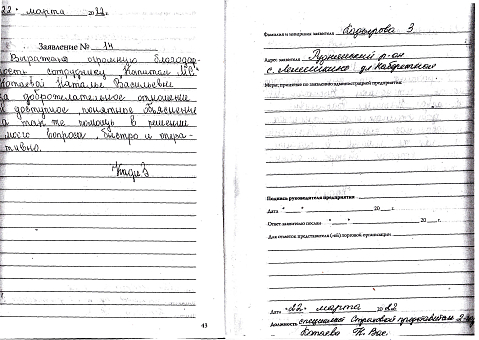 22 " марта 2022 г.
Заявление № 14
Выражаю огромную благодар-
ность сотруднику Капитал М.С.
Потаевой Наталье Васильевне
за доброжелательное отношение
и доступное, понятное объяснение
а так же помощь в решении
моего вопроса, быстро и опера-
тивно.
43
Фамилия и инициалы заявителя Кадырова З
Адрес заявителя Руднянский р-он
с. Лемешкино ул
Меры, принятые по заявлению администрацией предприятия
Подпись руководителя предприятия
Дата "___" ______ 20___ г.
Ответ заявителю послан "___" ______ 20___ г.
Для отметок представителя (-ей) торговой организации
Дата "22" марта 2022
Должность специалист Страховой представитель 2